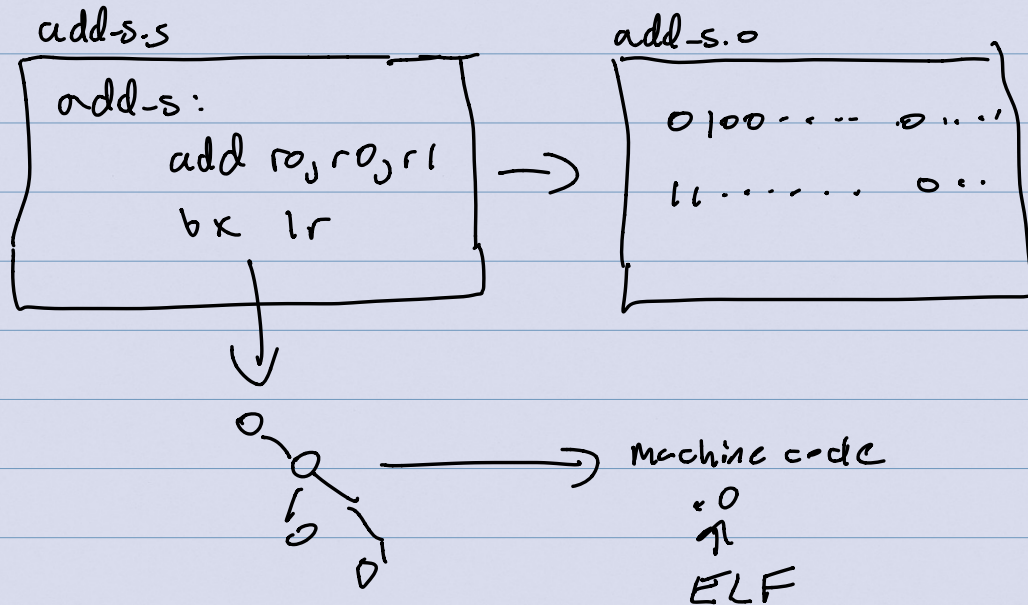 add-s.s
add-s:
add r0, r0, r1
bx lr
add-s.o
0100..... .0....
11....... 0..
machine code
.o
ELF